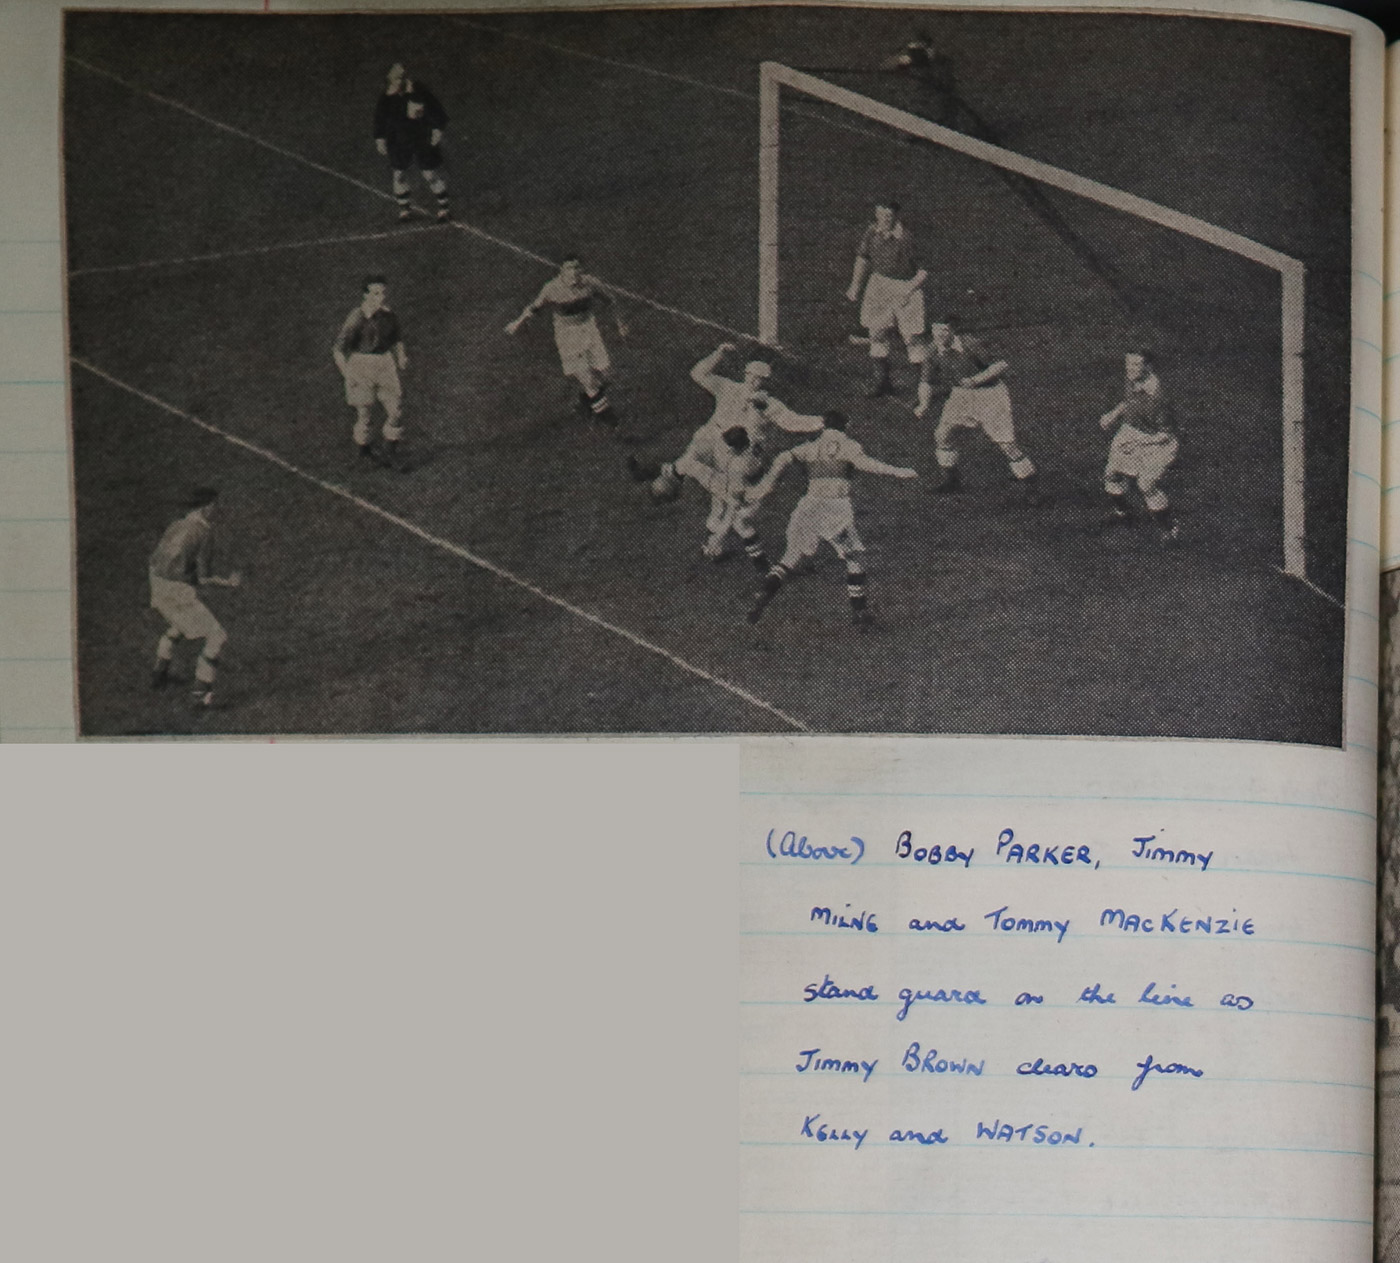 (Above) BOBBY PARKER, JIMMY
MILNE and TOMMY MACKENZIE
stand guard on the line as
JIMMY BROWN clears from
KELLY and WATSON.